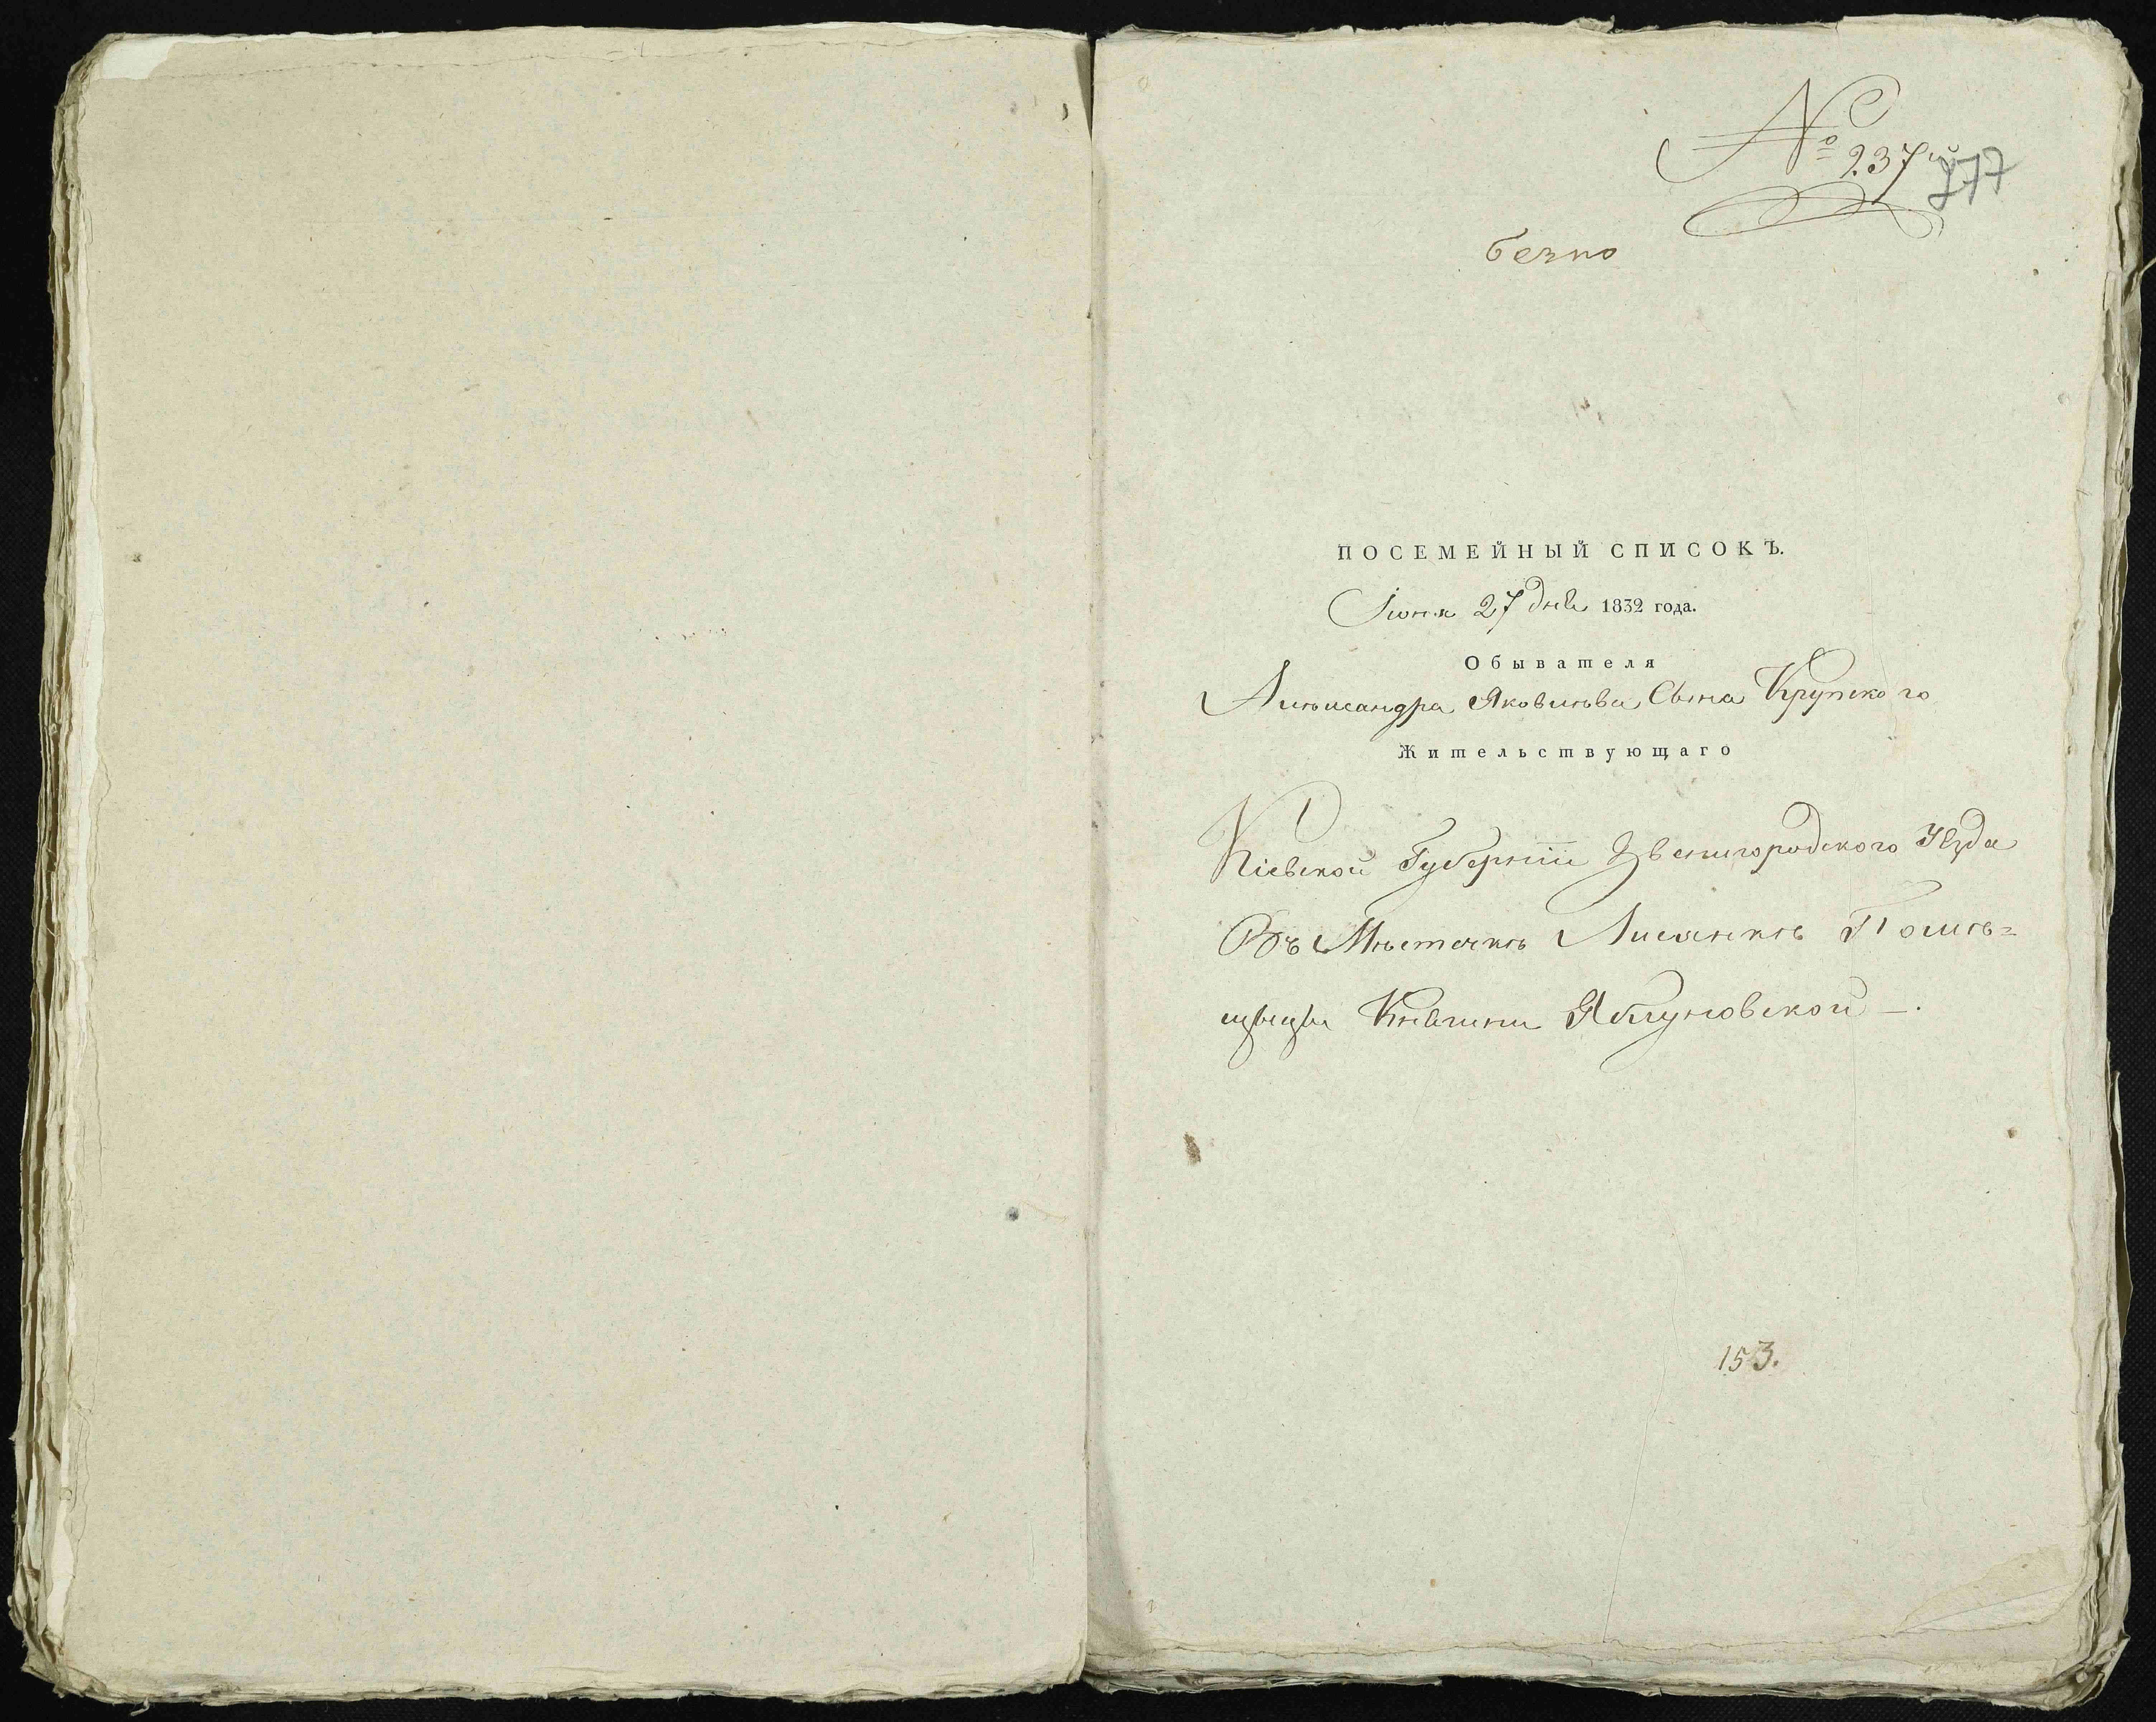 № 237й
277
безпо
ПОСЕМЕЙНЫЙ СПИСОКЪ.
Іюня 27 дня 1832 года.
Обывателя
Алѣксандра Яковлѣва Сына Крупского
Жительствующаго
Кіевской Губерніи Звенигородского Уѣзда
Въ Мѣстечкѣ Лисянкѣ Помѣ=
щицы Княгини Яблуновской —.
153.